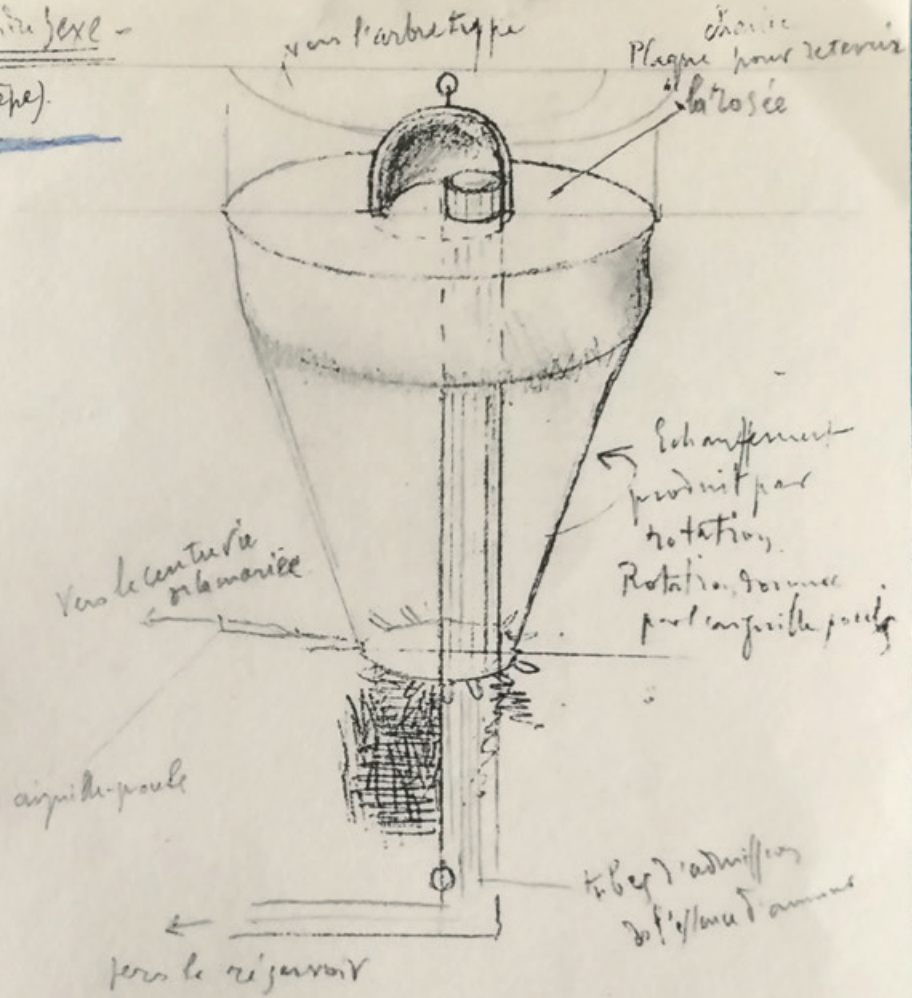 sexe -
vers l'arbre type
Plaque pour retenir
la rosée
Echauffement
produit par
rotation.
Rotation donnée
par l'aiguille pouls
Vers le centre vie
de la mariée
aiguille-pouls
tubes d'admission
de l'essence d'amour
vers le réservoir